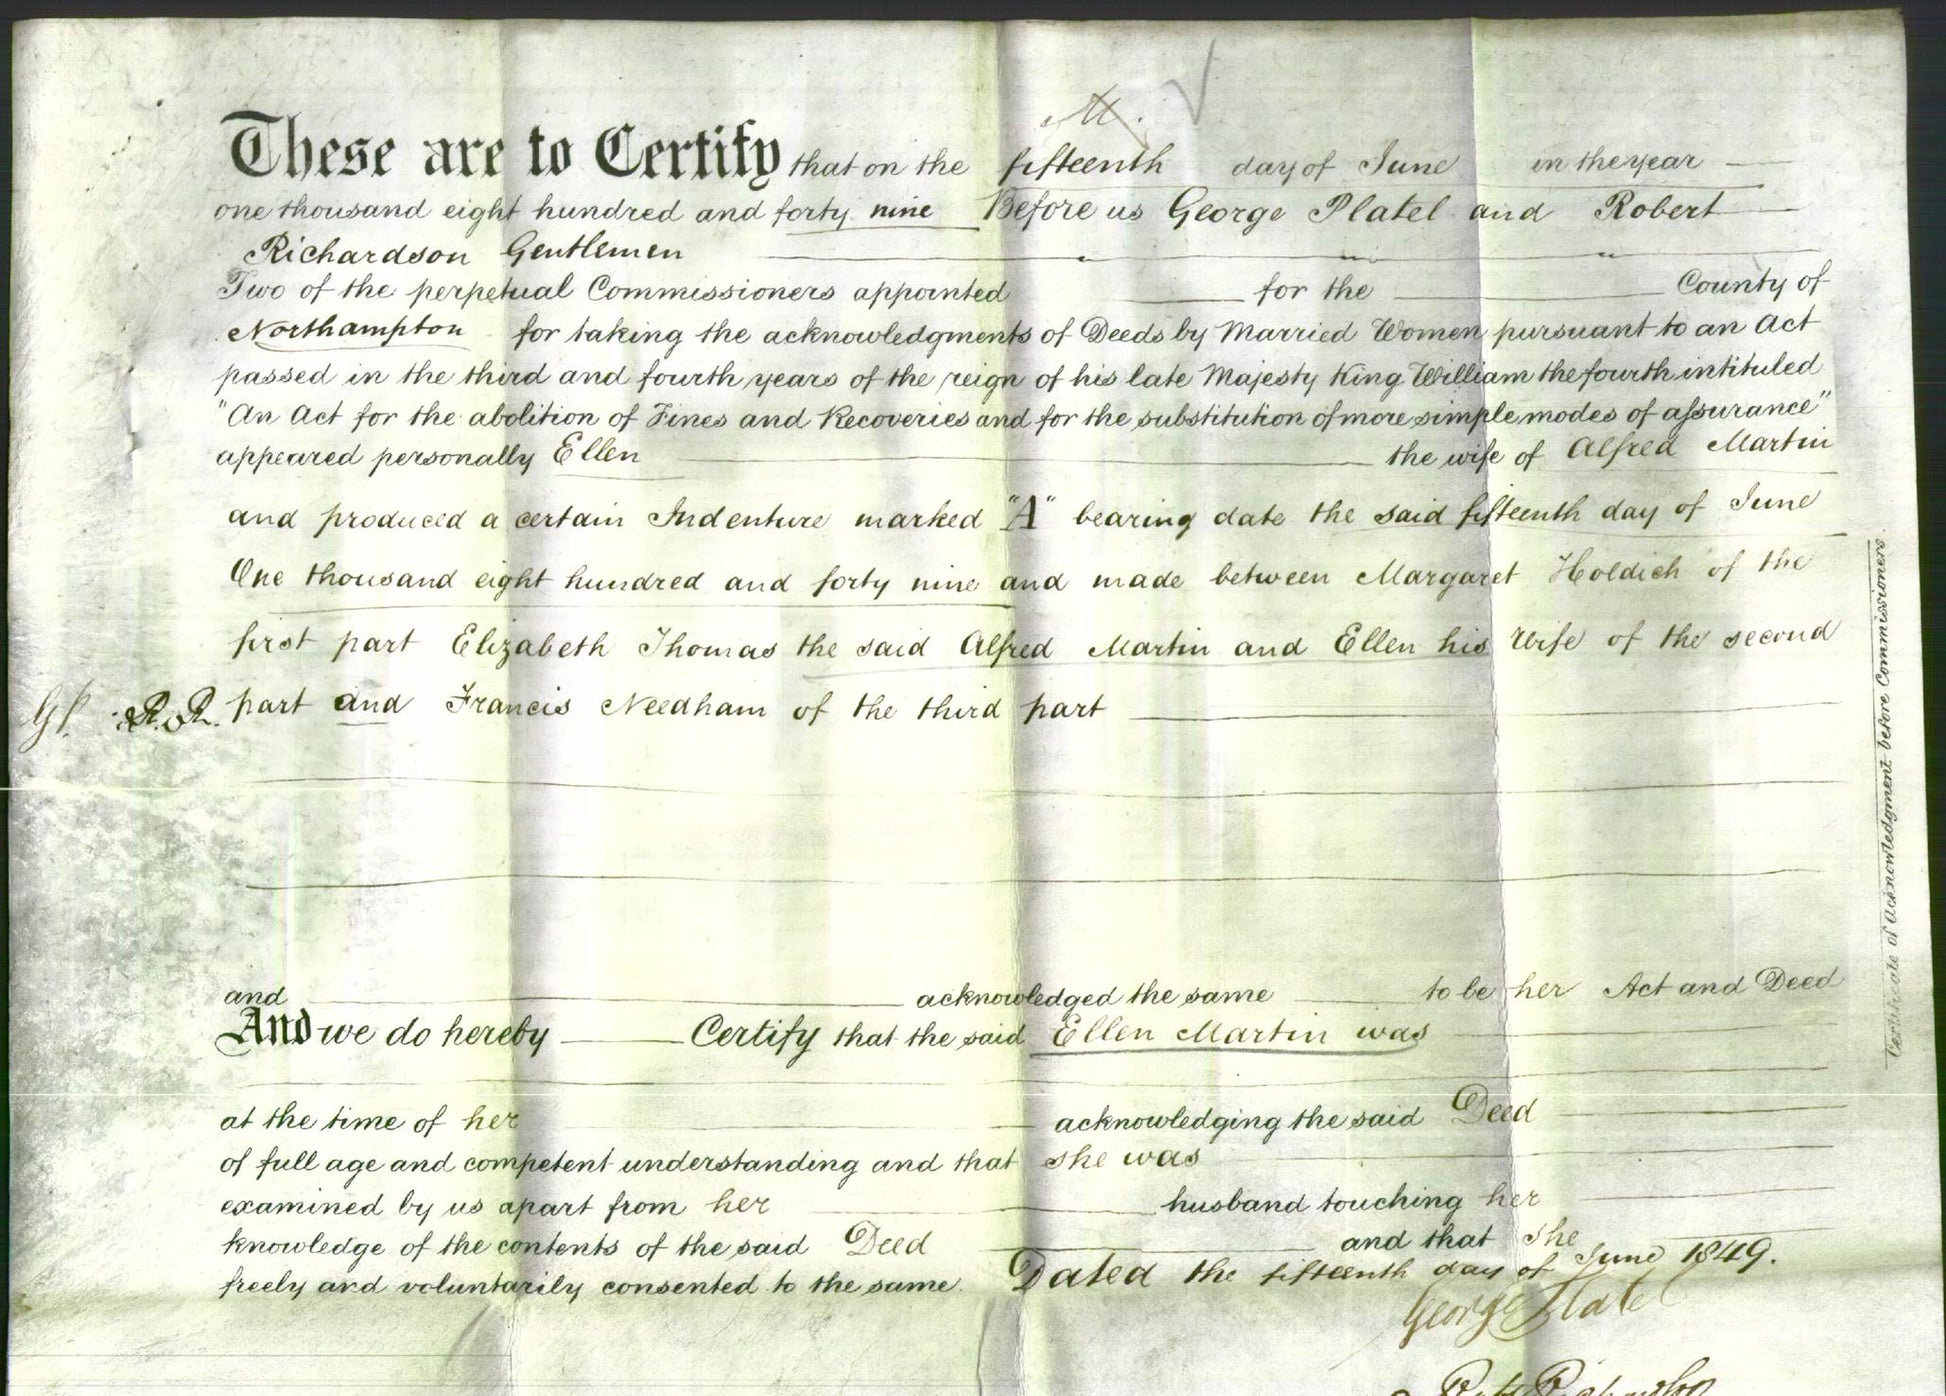 M.
These are to Certify that on the fifteenth day of June in the year
one thousand eight hundred and forty nine Before us George Platel and Robert
Richardson Gentlemen
Two of the perpetual Commissioners appointed for the County of
Northampton for taking the acknowledgments of Deeds by Married Women pursuant to an Act
passed in the third and fourth years of the reign of his late Majesty King William the fourth intituled
"An Act for the abolition of Fines and Recoveries and for the substitution of more simple modes of assurance"
appeared personally Ellen the wife of Alfred Martin
and produced a certain Indenture marked "A" bearing date the said fifteenth day of June
One thousand eight hundred and forty nine and made between Margaret Holdich of the
first part Elizabeth Thomas the said Alfred Martin and Ellen his Wife of the second
G P. R. R. part and Francis Needham of the third part
and acknowledged the same to be her Act and Deed
And we do hereby Certify that the said Ellen Martin was
at the time of her acknowledging the said Deed
of full age and competent understanding and that she was
examined by us apart from her husband touching her
knowledge of the contents of the said Deed and that she
freely and voluntarily consented to the same. Dated the fifteenth day of June 1849.
George Platel
Robt Richardson
Certificate of Acknowledgment before Commissioners